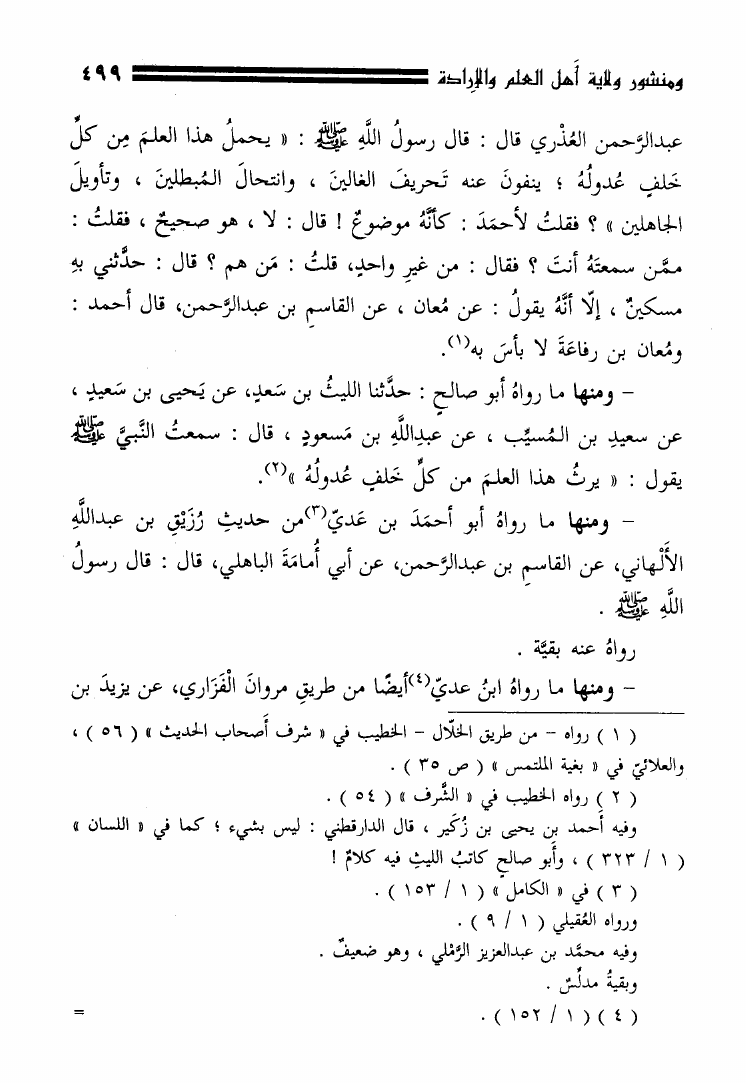 ومنشور ولاية أهل العلم والإرادة ٤٩٩
عبدالرَّحمن العُذْري قال : قال رسولُ اللَّهِ ﷺ : « يحملُ هذا العلمَ مِن كلِّ
خَلفٍ عُدولُهُ ؛ ينفونَ عنه تَحريفَ الغالينَ ، وانتحالَ المُبطلينَ ، وتأويلَ
الجاهلين » ؟ فقلتُ لأحمَدَ : كأنَّهُ موضوعٌ ! قال : لا ، هو صحيحٌ ، فقلتُ :
ممَّن سمعتَهُ أنتَ ؟ فقال : من غيرِ واحدٍ، قلتُ : مَن هم ؟ قال : حدَّثني بهِ
مسكينٌ ، إلّا أنَّهُ يقولُ : عن مُعان ، عن القاسمِ بن عبدالرَّحمن، قال أحمد :
ومُعان بن رفاعَةَ لا بأسَ به(١).
– ومنها ما رواهُ أبو صالحٍ : حدَّثنا الليثُ بن سَعدٍ، عن يَحيى بن سَعيدٍ ،
عن سعيدِ بن المُسيِّب ، عن عبدِاللَّهِ بن مَسعودٍ ، قال : سمعتُ النَّبيَّ ﷺ
يقول : « يرثُ هذا العلمَ من كلِّ خَلفٍ عُدولُهُ »(٢).
– ومنها ما رواهُ أبو أحمَدَ بن عَديّ(٣)من حديثِ رُزَيْقِ بن عبداللَّهِ
الأَلْهاني، عن القاسمِ بن عبدالرَّحمن، عن أبي أُمامَةَ الباهلي، قال : قال رسولُ
اللَّهِ ﷺ .
رواهُ عنه بقيَّة .
– ومنها ما رواهُ ابنُ عديّ(٤)أيضًا من طريقِ مروانَ الْفَزاري، عن يزيدَ بن
( ١ ) رواه – من طريق الخلّال – الخطيب في « شرف أصحاب الحديث » ( ٥٦ ) ،
والعلائيّ في « بغية الملتمس » ( ص ٣٥ ) .
( ٢ ) رواه الخطيب في « الشَّرف » ( ٥٤ ) .
وفيه أحمد بن يحيى بن زُكَير ، قال الدارقطني : ليس بشيء ؛ كما في « اللسان »
( ١ / ٣٢٣ ) ، وأبو صالحٍ كاتبُ الليثِ فيه كلامٌ !
( ٣ ) في « الكامل » ( ١ / ١٥٣ ) .
ورواه العُقيلي ( ١ / ٩ ) .
وفيه محمَّد بن عبدالعزيز الرَّمْلي ، وهو ضعيفٌ .
وبقيةُ مدلِّسٌ .
( ٤ ) ( ١ / ١٥٢ ) . =